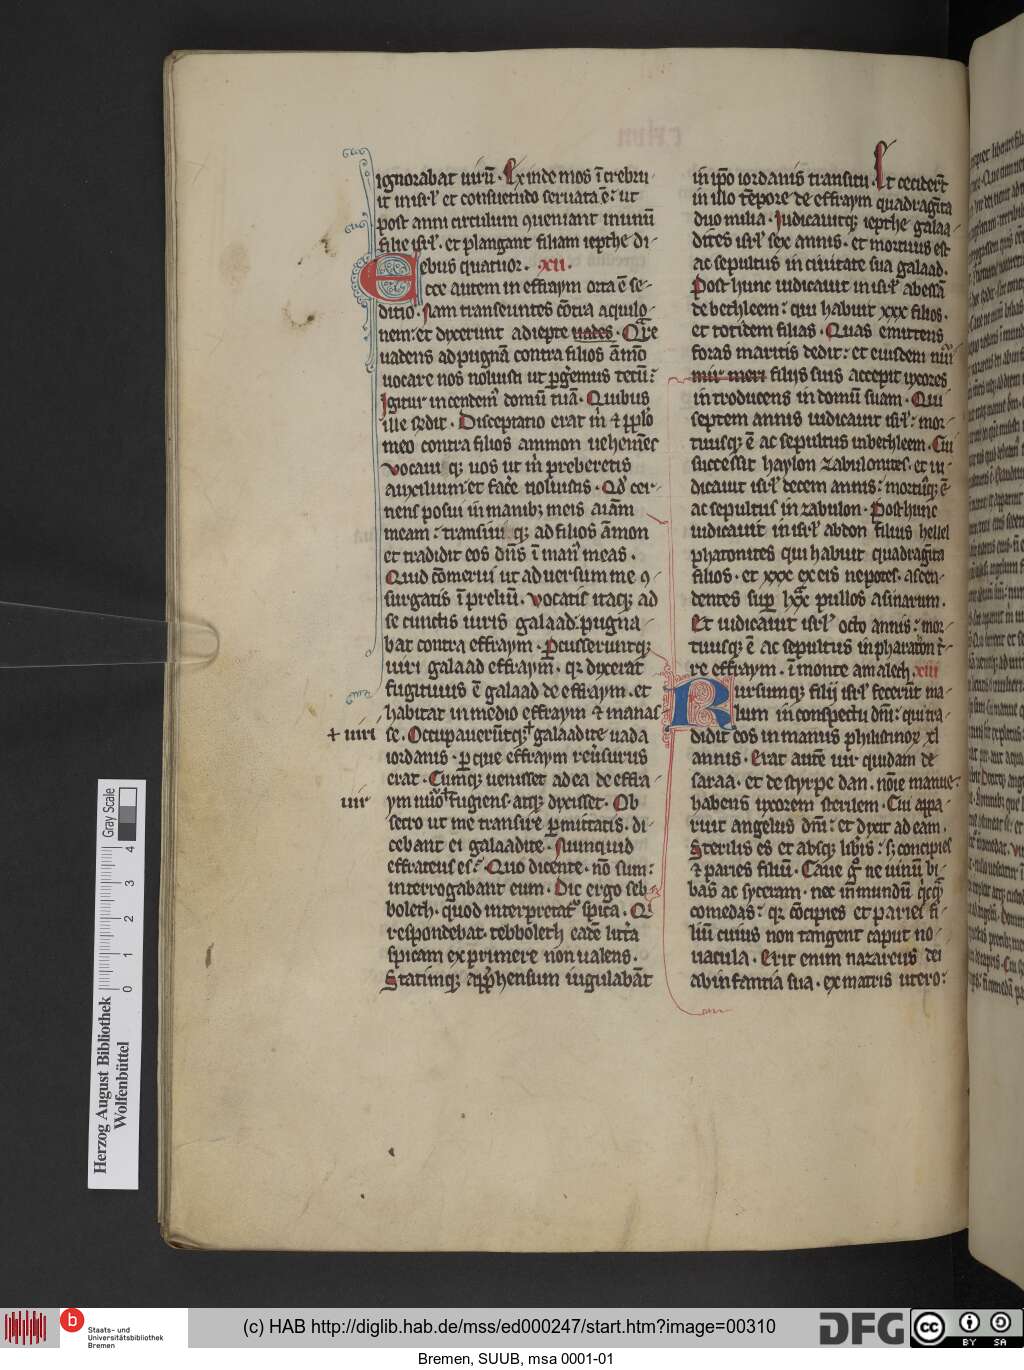 ignorabat uirū. Exinde mos ī crebru-
it in isrl̄ et consuetudo seruata ē: ut
post anni circulum ɔueniant in unū
filie isrl̄. et plangant filiam iepthe di-
ebus quatuor. xii.
Ecce autem in effraym orta ē se-
ditio. Nam transeuntes cōtra aquilo-
nem: et dixerunt ad iepte uades. Qre
uadens ad pugnā contra filios āmō
uocare nos noluisti ut pgemus tecū:
Igitur incendem domū tuā. Quibus
ille
Disceptatio erat m̄ ⁊ pplo
meo contra filios ammon uehemēs
Vocaui qꝫ uos ut m̄ preberetis
auxilium: et facē noluistis. Qd cer-
nens posui in manibꝫ meis aīam
meam: transiui qꝫ ad filios āmon
et tradidit eos dn̄s ī man᷒ meas.
Quid cōmerui ut aduersum me ɔ-
surgatis ī preliū. Vocatis itaqꝫ ad
se cunctis uiris galaad: pugna-
bat contra effraym. Pcusseruntqꝫ
uiri galaad effraym. qr dixerat
fugitiuus ē galaad de effraym. et
habitat in medio effraym ⁊ manas-
+ uiri
se. Occupauerūtqꝫ + galaadite uada
iordanis. p que effraym reūsurus
erat. Cumqꝫ uenisset ad ea de effra-
uir
ym nūo + fugiens. atqꝫ dixisset. Ob
secro ut me transire pmittatis. di-
cebant ei galaadite. Nunquid
effrateus es: Quo dicente. nō sum:
interrogabant eum. Dic ergo seb-
boleth. quod interpretat᷒ spica. Qi
respondebat. tebboleth eadē litt̄a
spicam exprimere non ualens.
Statimqꝫ apphensum iugulabāt
in ipō iordanis transitu. Et cecidert̄
in illo tēpore de effraym quadragīta
duo milia. Iudicauitqꝫ iepthe galaa-
dites isrl̄ sex annis. et mortuus est
ac sepultus in ciuitate sua galaad.
Post hunc iudicauit in isrl̄ abessā
de bethleem: qui habuit xxx filios.
et totidem filias. Quas emittens
foras maritis dedit: et eiusdem nūi
mir meri filijs suis accepit uxores
introducens in domū suam. Qui
septem annis iudicauit isrl̄: mor-
tuusqꝫ ē ac sepultus in bethleem. Cui
successit haylon zabulonites. et iu-
dicauit isrl̄ decem annis: mortūqꝫ ē
ac sepultus in zabulon. Post hunc
iudicauit in isrl̄ abdon filius hellel
pharonites qui habuit quadragīta
filios. et xxx ex eis nepotes. ascen-
dentes sup lxx pullos asinarum.
Et iudicauit isrl̄ octo annis: mor-
tuusqꝫ ē ac sepultus in pharaton t̄-
re effraym. ī monte amalech. xiii
Rursumqꝫ filij isrl̄ fecerūt ma-
lum in conspectu dn̄i: qui tra-
didit eos in manus philistinoꝝ xl
annis. Erat autē uir quidam de
saraa. et de styrpe dan. nōie manue:
habens uxorem sterilem. Cui appa-
ruit angelus dn̄i: et dixit ad eam.
Sterilis es et absqꝫ libīs: sꝫ concipies
⁊ paries filiū. Caue gͦ ne uinū bi-
bas ac syceram. nec īmundū qicqͣ
comedas: qr cōcipies et paries fi-
liū cuius non tangent caput no-
uacula. Erit enim nazareus dei
ab infantia sua. ex matris utero:
Gray Scale
0 1 2 3 4
Herzog August Bibliothek
Wolfenbüttel
b
Staats- und
Universitätsbibliothek
Bremen
(c) HAB http://diglib.hab.de/mss/ed000247/start.htm?image=00310
DFG
cc
BY SA
Bremen, SUUB, msa 0001-01